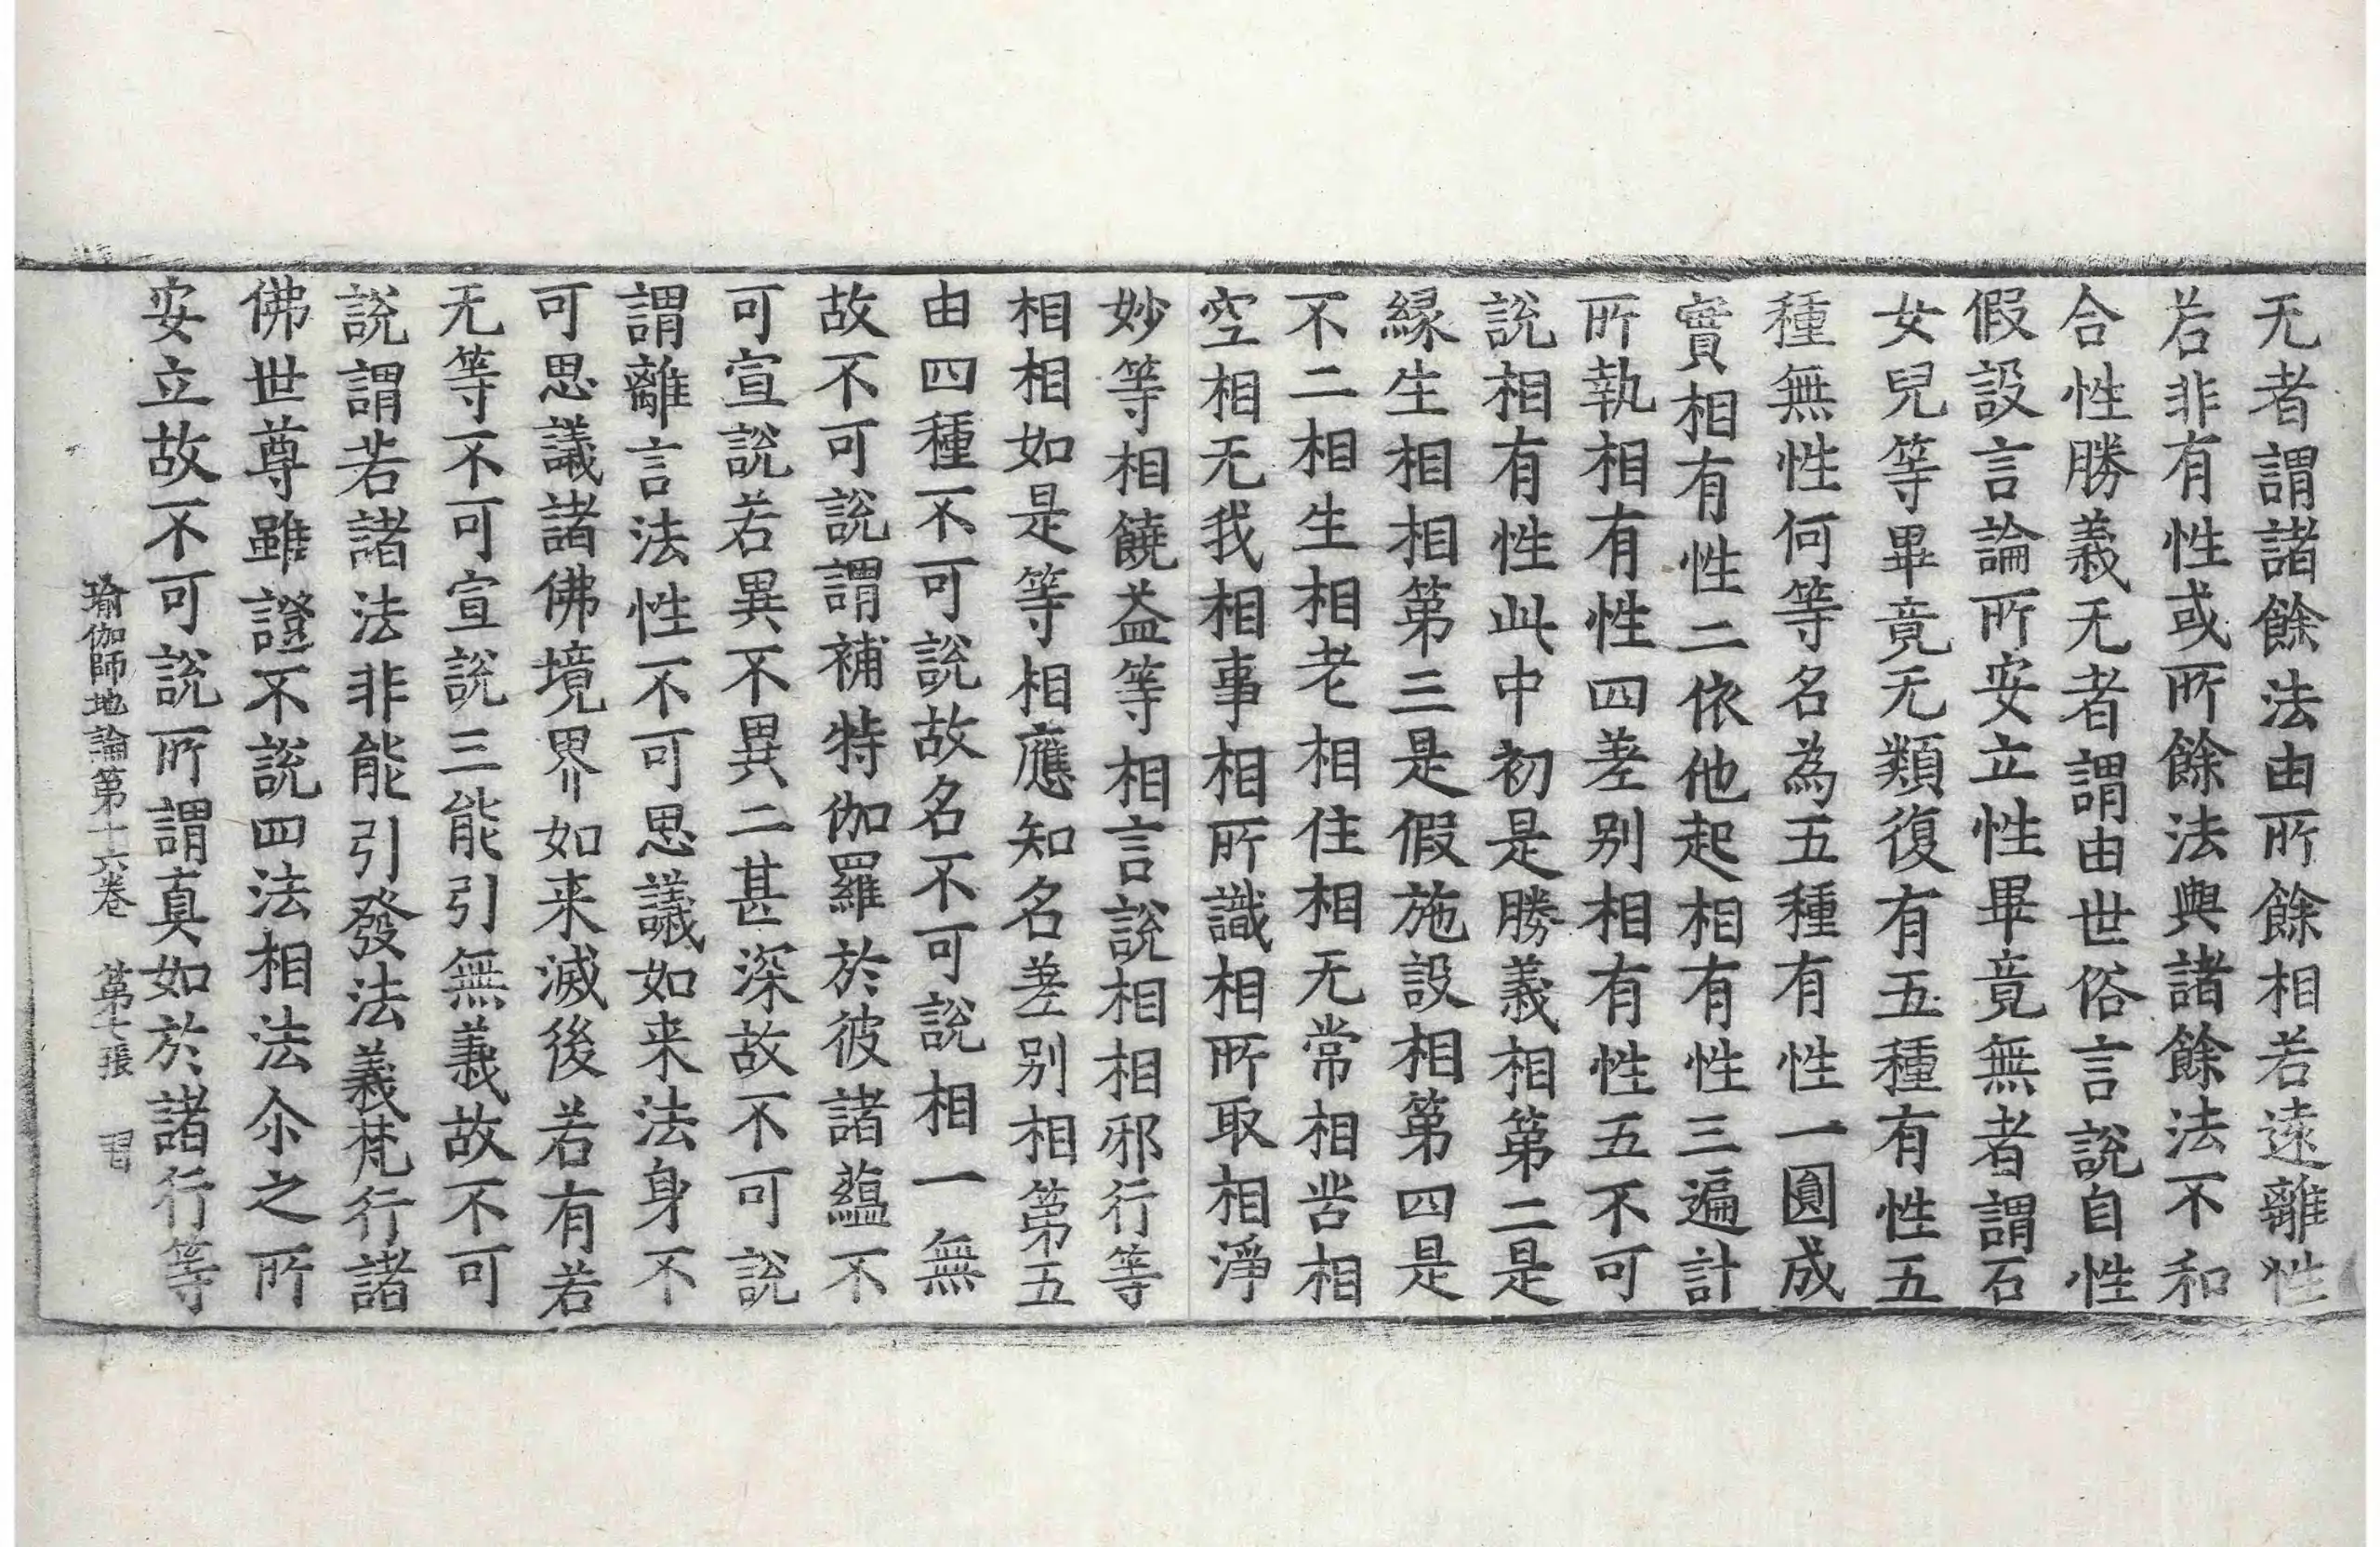 无者謂諸餘法由所餘相若遠離性
若非有性或所餘法與諸餘法不和
合性勝義无者謂由世俗言說自性
假設言論所安立性畢竟無者謂石
女兒等畢竟无類復有五種有性五
種無性何等名為五種有性一圓成
實相有性二依他起相有性三遍計
所執相有性四差别相有性五不可
說相有性此中初是勝義相第二是
緣生相相第三是假施設相第四是
不二相生相老相住相无常相苦相
空相无我相事相所識相所取相淨
妙等相饒益等相言說相相邪行等
相相如是等相應知名差别相第五
由四種不可說故名不可說相一無
故不可說謂補特伽羅於彼諸蘊不
可宣說若異不異二甚深故不可說
謂離言法性不可思議如来法身不
可思議諸佛境界如来滅後若有若
无等不可宣說三能引無義故不可
說謂若諸法非能引發法義梵行諸
佛世尊雖證不說四法相法尒之所
安立故不可說所謂真如於諸行等
瑜伽師地論第十六卷　第七張　習